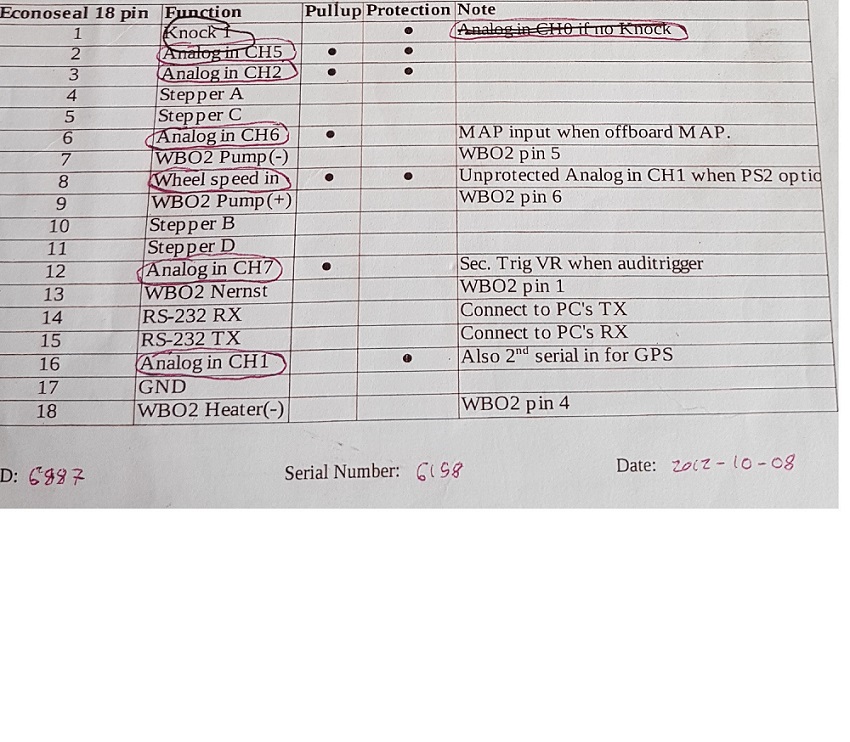 Econoseal 18 pin Function Pullup Protection Note
1 Knock 1 • Analog in CH0 if no Knock
2 Analog in CH5 • •
3 Analog in CH2 • •
4 Stepper A
5 Stepper C
6 Analog in CH6 • MAP input when offboard MAP.
7 WBO2 Pump(-) WBO2 pin 5
8 Wheel speed in • • Unprotected Analog in CH1 when PS2 optio
9 WBO2 Pump(+) WBO2 pin 6
10 Stepper B
11 Stepper D
12 Analog in CH7 • Sec. Trig VR when auditrigger
13 WBO2 Nernst WBO2 pin 1
14 RS-232 RX Connect to PC's TX
15 RS-232 TX Connect to PC's RX
16 Analog in CH1 • Also 2nd serial in for GPS
17 GND
18 WBO2 Heater(-) WBO2 pin 4
D: Serial Number: 6158 Date: 2012-10-08